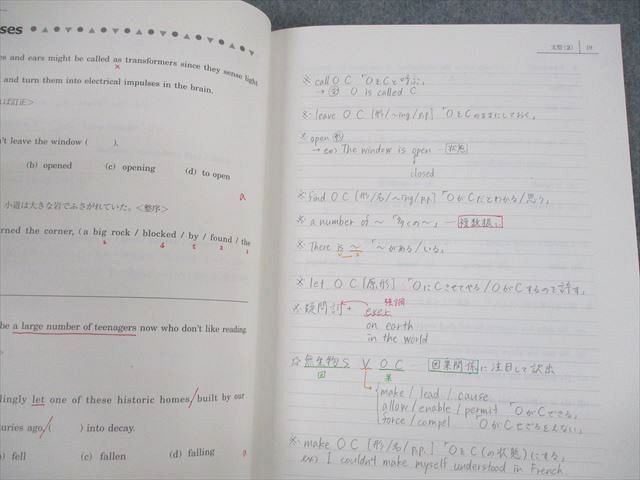 ses
es and ears might be called as transformers since they sense light
×
and turn them into electrical impulses in the brain.
れば訂正>
't leave the window ( ).
(b) opened (c) opening (d) to open
a
小道は大きな岩でふさがれていた。<整序>
rned the corner, (a big rock / blocked / by / found / the
be a large number of teenagers now who don't like reading
llingly let one of these historic homes / built by our
uries ago / ( ) into decay.
) fell (c) fallen (d) falling
a
文型(2) 19
※ call O C 「OをCと呼ぶ」
→ O is called C
※ leave O C [形/~ing/p.p.] 「OをCのままにしておく」
※ open 形
→ ex) The window is open ― 状態
closed
※ find O C [形/名/~ing/p.p.] 「OがCだとわかる/思う」
※ a number of ~ 「多くの~」 ― 複数扱い
※ There is ~ 「~がある/いる」
※ let O C [原形] 「OにCさせてやる/OがCするのを許す」
強調
※ 疑問詞 + ever
on earth
in the world
☆ 無生物S V O C 因果関係に注目して訳出
因 果
make / lead / cause
allow / enable / permit 「OがCできる」
force / compel 「OがCせざるをえない」
※ make O C [形/名/p.p.] 「OをC(の状態)にする」
ex) I couldn't make myself understood in French.